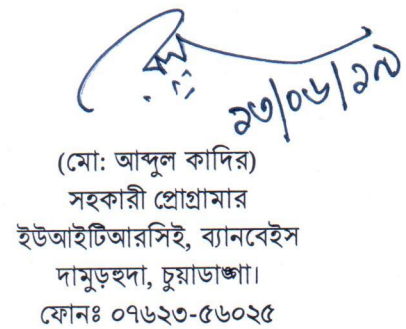 ২৩/০৬/১৯
(মো: আব্দুল কাদির)
সহকারী প্রোগ্রামার
ইউআইটিআরসিই, ব্যানবেইস
দামুড়হুদা, চুয়াডাঙ্গা।
ফোনঃ ০৭৬২৩-৫৬০২৫